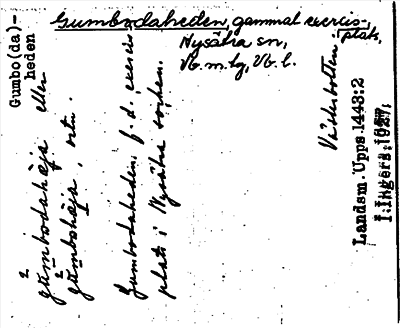 Gumbodaheden, gammal exercis-
plats,
Nysätra sn,
Vb. m. fg, Vb. l.
Gumbo(da)-
heden
gumbodahɛja eller
gumbohɛja, ortn.
Gumbodaheden, f. d. exercis-
plats i Nysätra socken.
Västerbotten.
Landsm. Upps. 1443:2
1927;